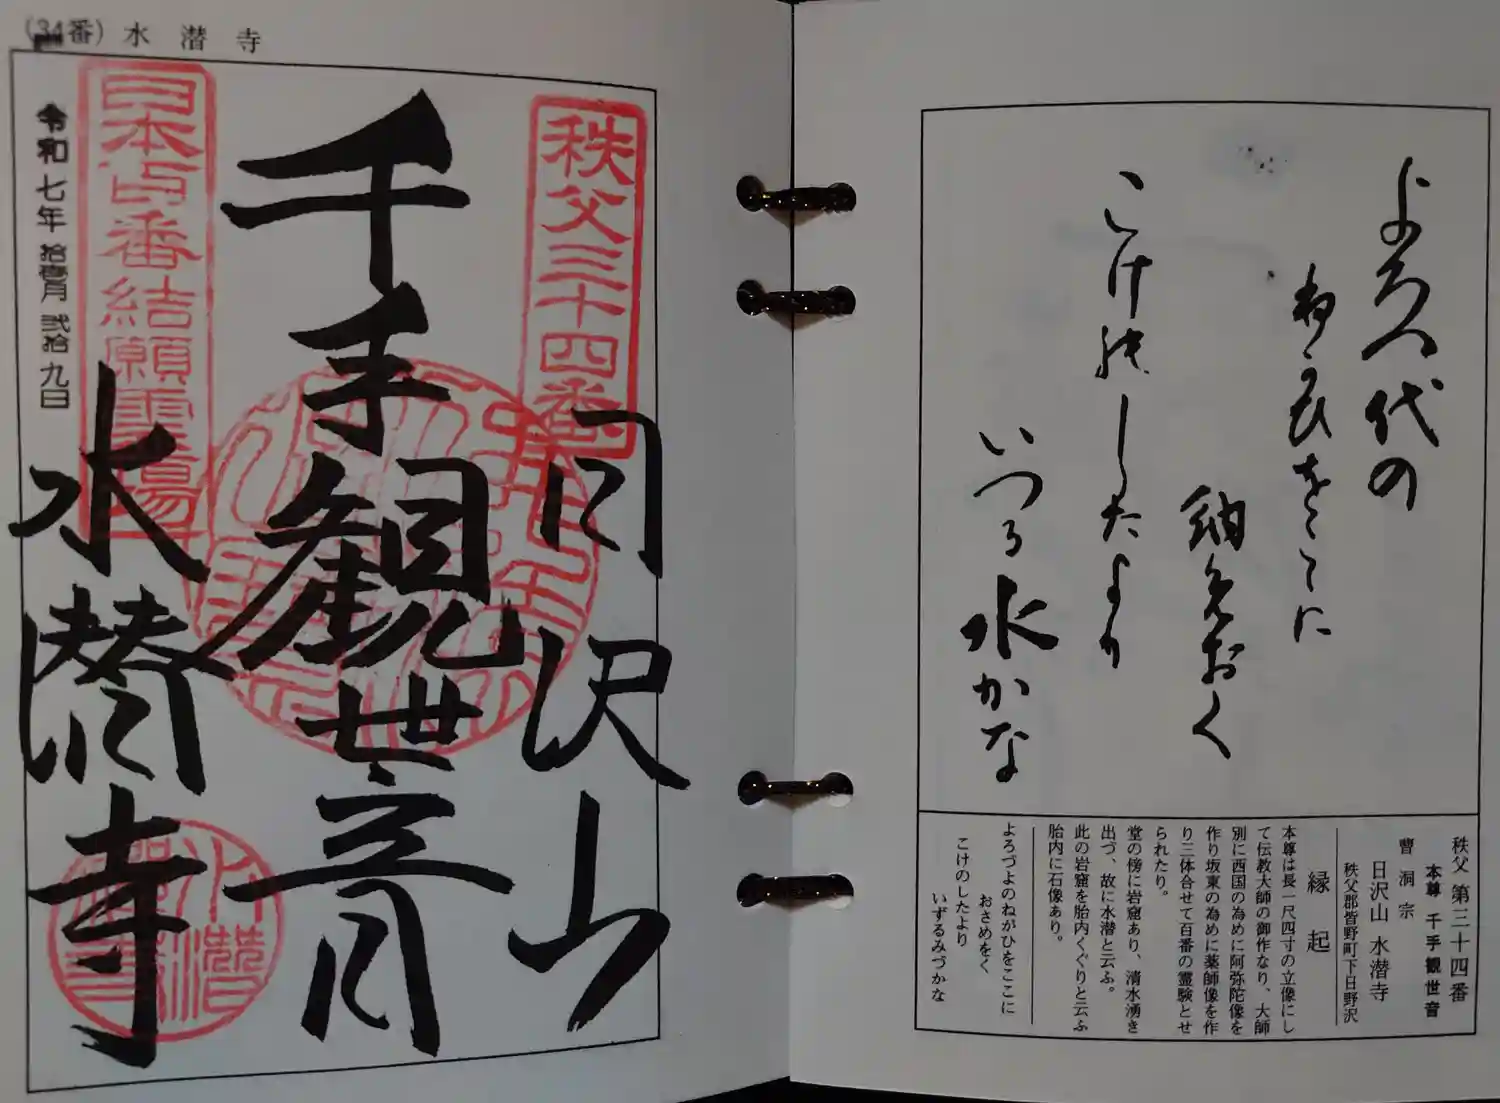 (34番) 水潜寺
秩父三十四番
日沢山
千手観世音
水潜寺
日本百番結願霊場
令和七年拾壹月弐拾九日
よろつ代の
ねかひをここに
納めおく
こけのしたより
いつる水かな
秩父 第三十四番
本尊 千手観世音
曹洞宗
日沢山 水潜寺
秩父郡皆野町下日野沢
縁起
本尊は長一尺四寸の立像にし
て伝教大師の御作なり、大師
別に西国の為めに阿弥陀像を
作り坂東の為めに薬師像を作
り三体合せて百番の霊験とせ
られたり。
堂の傍に岩窟あり、清水湧き
出づ、故に水潜と云ふ。
此の岩窟を胎内くぐりと云ふ
胎内に石像あり。
よろづよのねがひをここに
おさめをく
こけのしたより
いずるみづかな